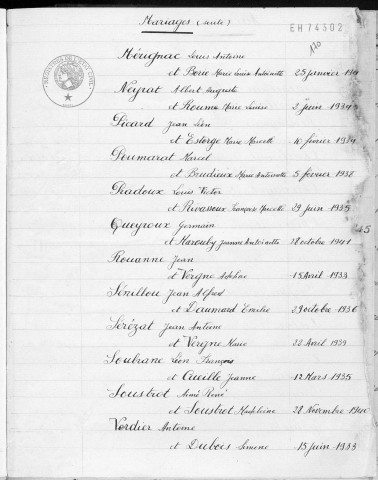 Mariages (suite)
EH 74302
170
Mérignac Louis Antoine
et Borie Marie Louise Antoinette 25 janvier
Neyrat Albert Auguste
et Roume Marie Louise 2 juin 1934
Picard Jean Léon
et Estorge Marie Marcelle 10 février 1934
Poumarat Marcel
et Brudieux Marie Antoinette 5 février 1938
Pradoux Louis Victor
et Rivassoux Françoise Marcelle 29 juin 1935
Queyroux Germain
et Marouby Jeanne Antoinette 18 octobre 1941
Rouanne Jean
et Vergne Adeline 15 Avril 1933
Sénillou Jean Alfred
et Daumard Emilie 29 octobre 1936
Sérézat Jean Antoine
et Vergne Marie 22 Avril 1939
Soubrane Léon François
et Cueille Jeanne 12 Mars 1935
Soustrot Aimé René
et Soustrot Madeleine 28 Novembre 1940
Verdier Antoine
et Dubois Simone 15 juin 1933